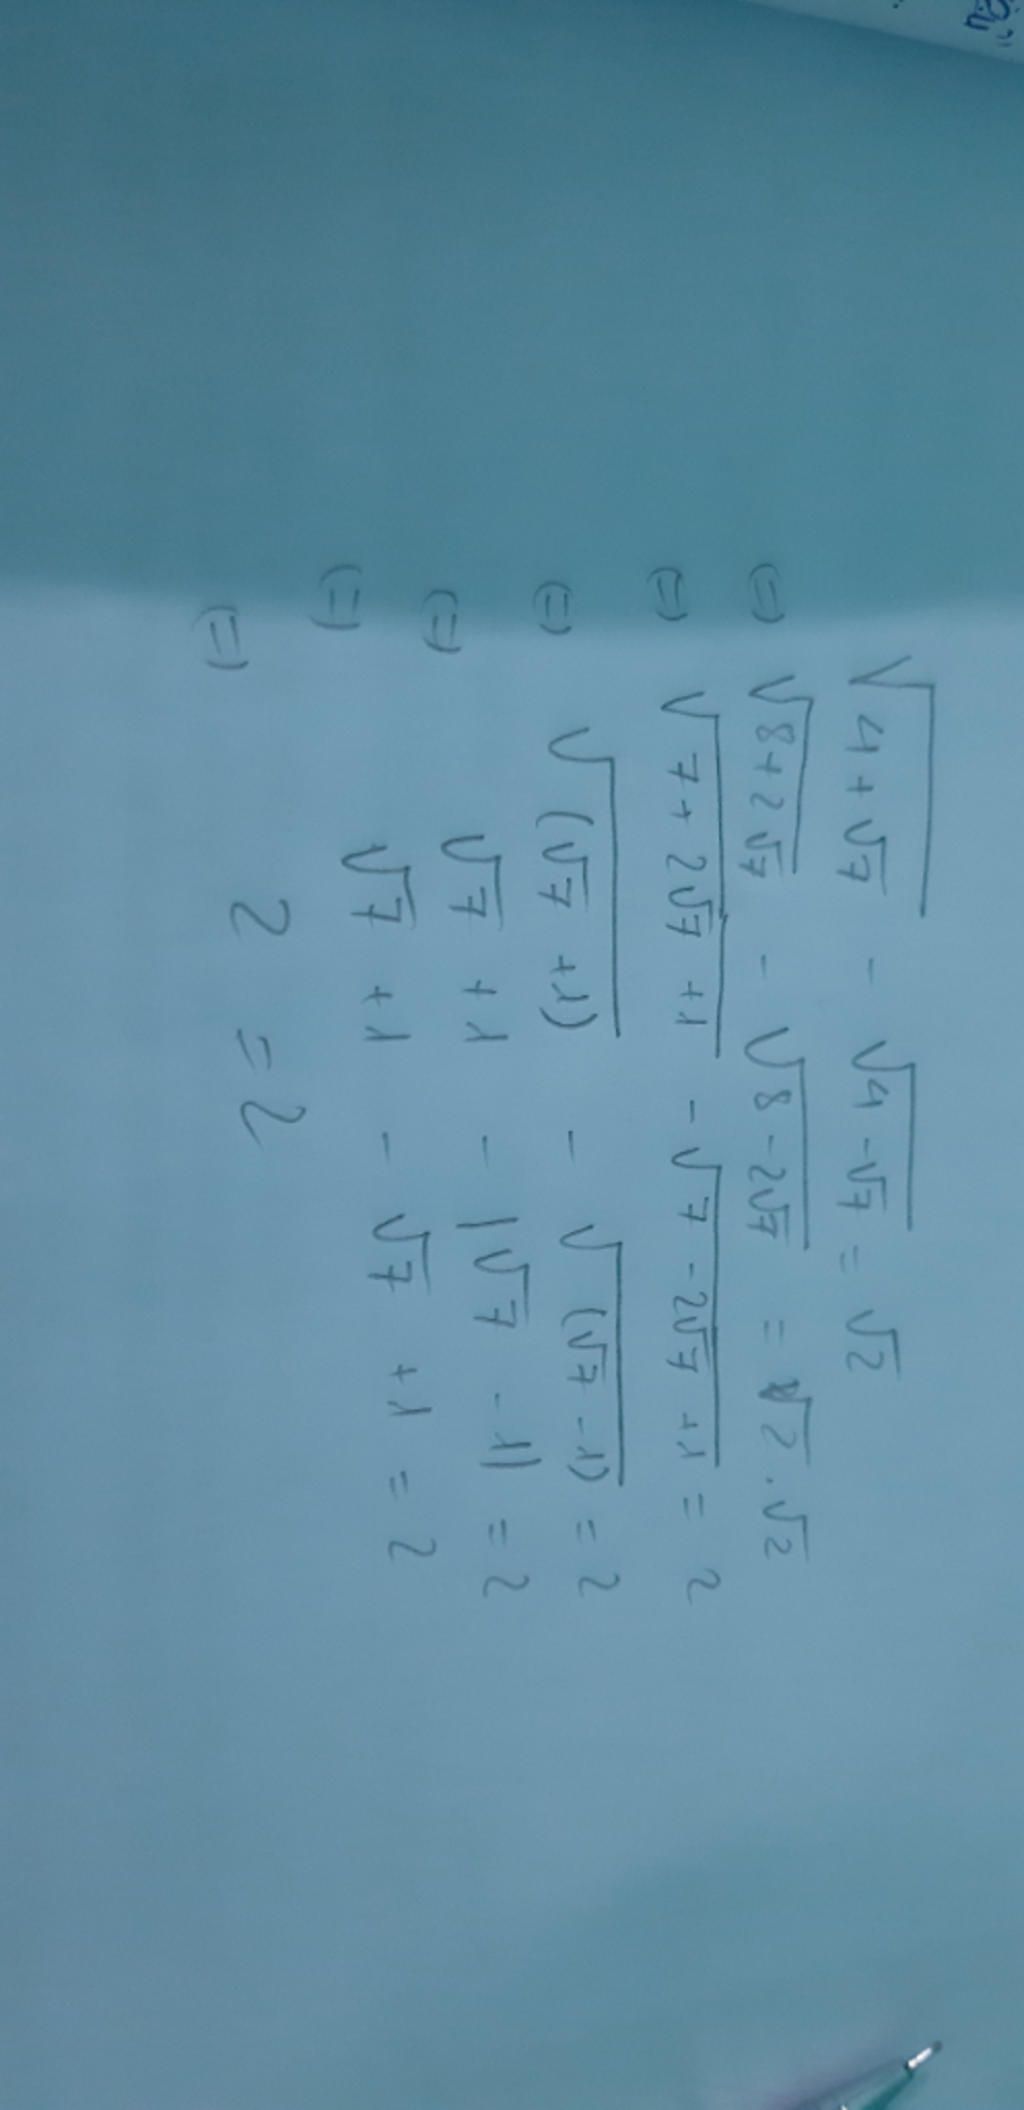 √(4+√7) - √(4-√7) = √2
(=) √(8+2√7) - √(8-2√7) = √2.√2
(=) √(7+2√7+1) - √(7-2√7+1) = 2
(=) √((√7+1)) - √((√7-1)) = 2
(=) √7+1 - |√7-1| = 2
(=) √7+1 - √7+1 = 2
(=) 2 = 2